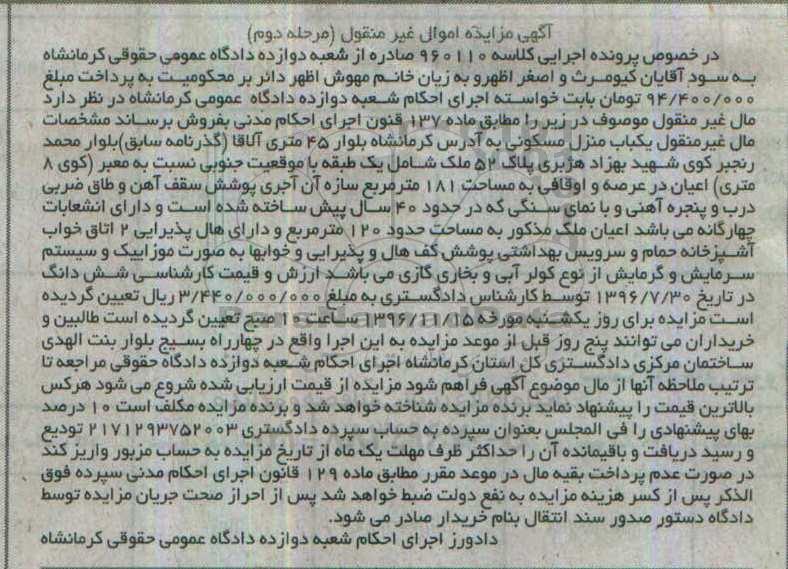 آگهی مزایده اموال غیر منقول (مرحله دوم)
در خصوص پرونده اجرایی کلاسه ۹۶۰۱۱۰ صادره از شعبه دوازده دادگاه عمومی حقوقی کرمانشاه
به سود آقایان کیومرث و اصغر اظهرو به زیان خانم مهوش اظهر دائر بر محکومیت به پرداخت مبلغ
۹۴/۴۰۰/۰۰۰ تومان بابت خواسته اجرای احکام شعبه دوازده دادگاه عمومی کرمانشاه در نظر دارد
مال غیر منقول موصوف در زیر را مطابق ماده ۱۳۷ قنون اجرای احکام مدنی بفروش برساند مشخصات
مال غیرمنقول یکباب منزل مسکونی به آدرس کرمانشاه بلوار ۴۵ متری آلاقا (گذرنامه سابق)بلوار محمد
رنجبر کوی شهید بهزاد هژبری پلاک ۵۲ ملک شامل یک طبقه با موقعیت جنوبی نسبت به معبر (کوی ۸
متری) اعیان در عرصه و اوقافی به مساحت ۱۸۱ مترمربع سازه آن آجری پوشش سقف آهن و طاق ضربی
درب و پنجره آهنی و با نمای سنگی که در حدود ۴۰ سال پیش ساخته شده است و دارای انشعابات
چهارگانه می باشد اعیان ملک مذکور به مساحت حدود ۱۲۰ مترمربع و دارای هال پذیرایی ۲ اتاق خواب
آشپزخانه حمام و سرویس بهداشتی پوشش کف هال و پذیرایی و خوابها به صورت موزاییک و سیستم
سرمایش و گرمایش از نوع کولر آبی و بخاری گازی می باشد ارزش و قیمت کارشناسی شش دانگ
در تاریخ ۱۳۹۶/۷/۳۰ توسط کارشناس دادگستری به مبلغ ۳/۴۴۰/۰۰۰/۰۰۰ ریال تعیین گردیده
است مزایده برای روز یکشنبه مورخه ۱۳۹۶/۱۱/۱۵ ساعت ۱۰ صبح تعیین گردیده است طالبین و
خریداران می توانند پنج روز قبل از موعد مزایده به این اجرا واقع در چهارراه بسیج بلوار بنت الهدی
ساختمان مرکزی دادگستری کل استان کرمانشاه اجرای احکام شعبه دوازده دادگاه حقوقی مراجعه تا
ترتیب ملاحظه آنها از مال موضوع آگهی فراهم شود مزایده از قیمت ارزیابی شده شروع می شود هرکس
بالاترین قیمت را پیشنهاد نماید برنده مزایده شناخته خواهد شد و برنده مزایده مکلف است ۱۰ درصد
بهای پیشنهادی را فی المجلس بعنوان سپرده به حساب سپرده دادگستری ۲۱۷۱۲۹۳۷۵۲۰۰۳ تودیع
و رسید دریافت و باقیمانده آن را حداکثر ظرف مهلت یک ماه از تاریخ مزایده به حساب مزبور واریز کند
در صورت عدم پرداخت بقیه مال در موعد مقرر مطابق ماده ۱۲۹ قانون اجرای احکام مدنی سپرده فوق
الذکر پس از کسر هزینه مزایده به نفع دولت ضبط خواهد شد پس از احراز صحت جریان مزایده توسط
دادگاه دستور صدور سند انتقال بنام خریدار صادر می شود.
دادورز اجرای احکام شعبه دوازده دادگاه عمومی حقوقی کرمانشاه